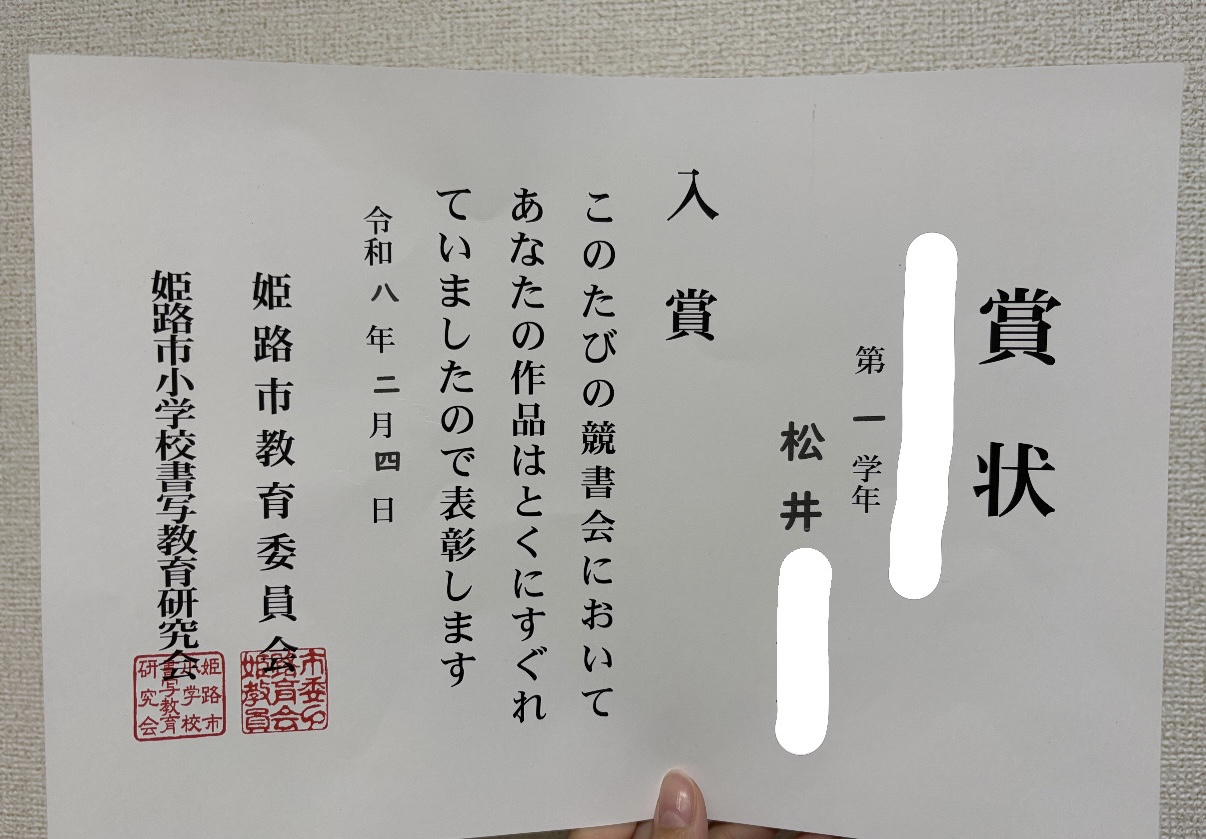 賞状
第一学年
松井
入賞
このたびの競書会において
あなたの作品はとくにすぐれ
ていましたので表彰します
令和八年二月四日
姫路市教育委員会
姫路市小学校書写教育研究会
姫路市
小学校
書写教育
研究会